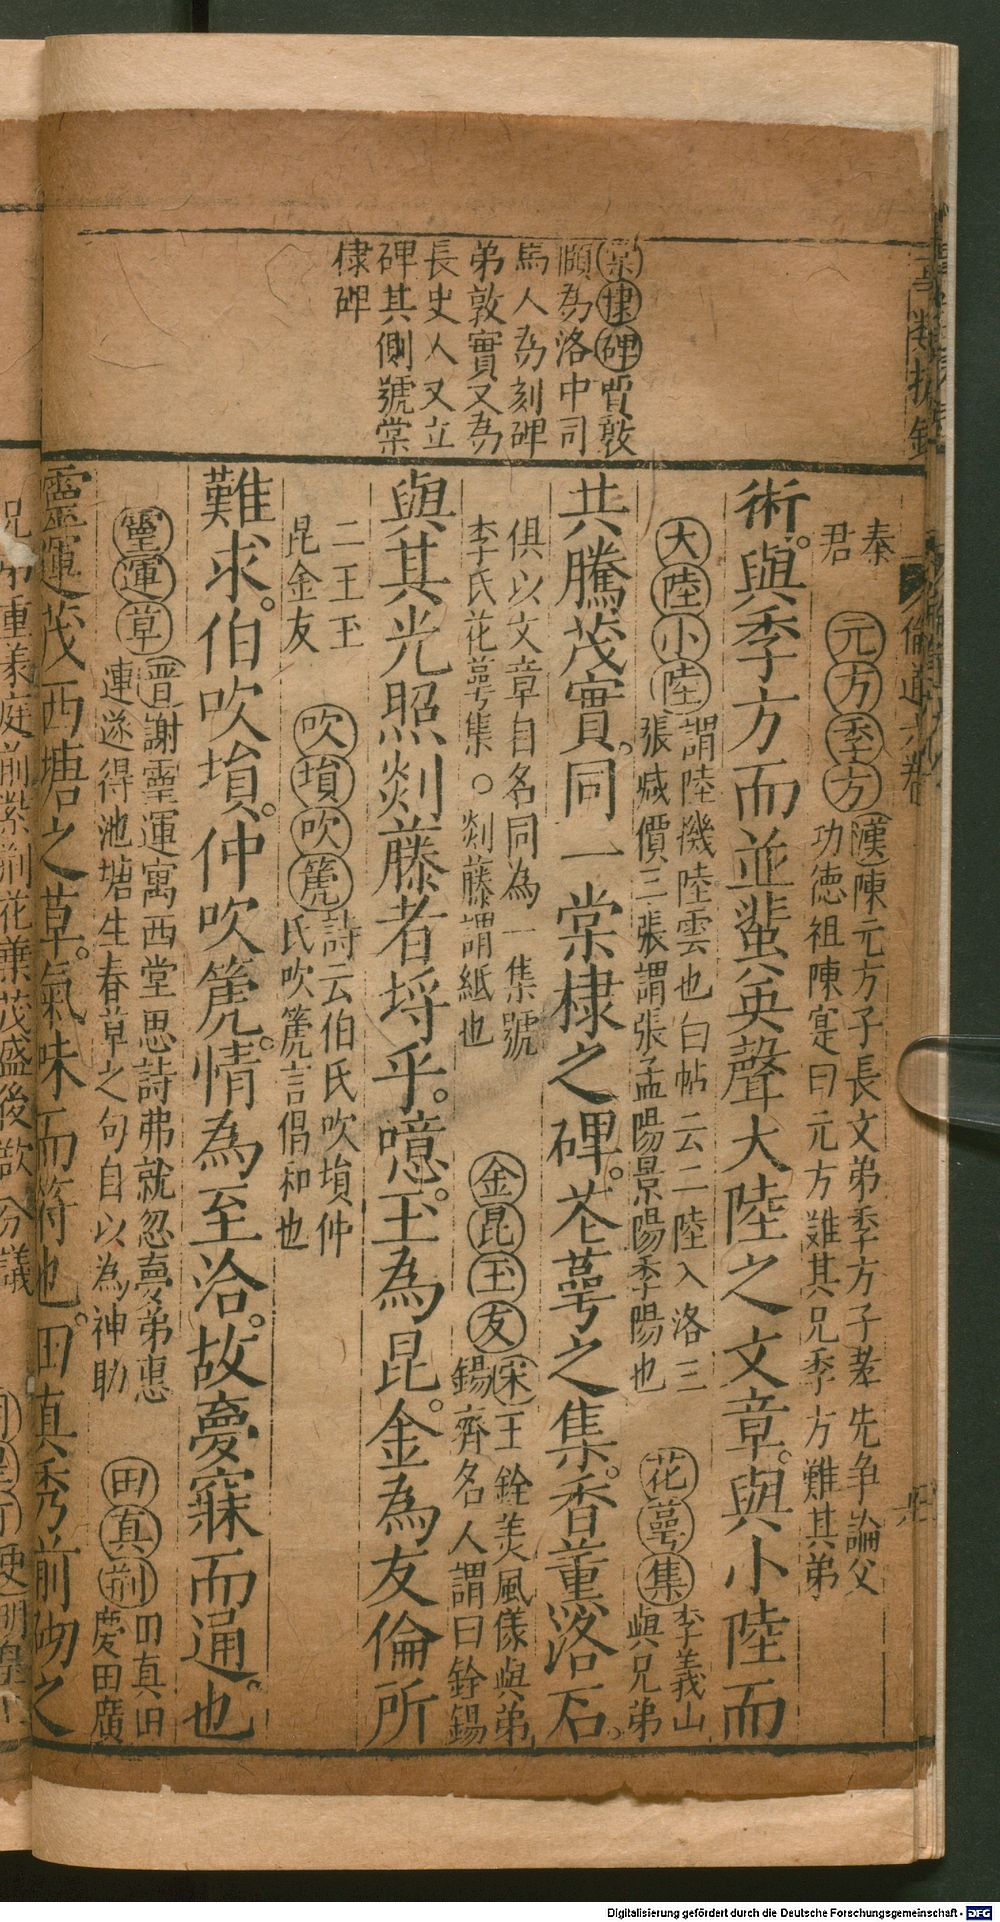 棠棣碑賈敦
頤為洛中司
馬人為刻碑
弟敦實又為
長史人又立
碑其側號棠
棣碑
秦
君
元方季方漢陳元方子長文弟季方子孝先争論父
功德祖陳寔曰元方難其兄季方難其弟
術。與季方而並蜚英聲大陸之文章。與小陸而
大陸小陸謂陸機陸雲也白帖云二陸入洛三
張减價三張謂張孟陽景陽季陽也
花萼集李義山
與兄弟
共騰茂實。同一棠棣之碑。花萼之集。香薰落石。
俱以文章自名同為一集號
李氏花萼集○剡藤謂紙也
金昆玉友宋王銓美風儀與弟
錫齊名人謂曰銓錫
與其光照剡藤者埒乎。噫。玉為昆。金為友倫所
二王玉
昆金友
吹塤吹篪詩云伯氏吹塤仲
氏吹篪言倡和也
難求。伯吹塤。仲吹篪。情為至洽。故夣寐而通。也
靈運草晋謝靈運寓西堂思詩弗就忽夣弟惠
連遂得池塘生春草之句自以為神助
田真荊田真田
慶田廣
靈運茂西塘之草。氣味而符也。田真秀前砌之
Digitalisierung gefördert durch die Deutsche Forschungsgemeinschaft - DFG